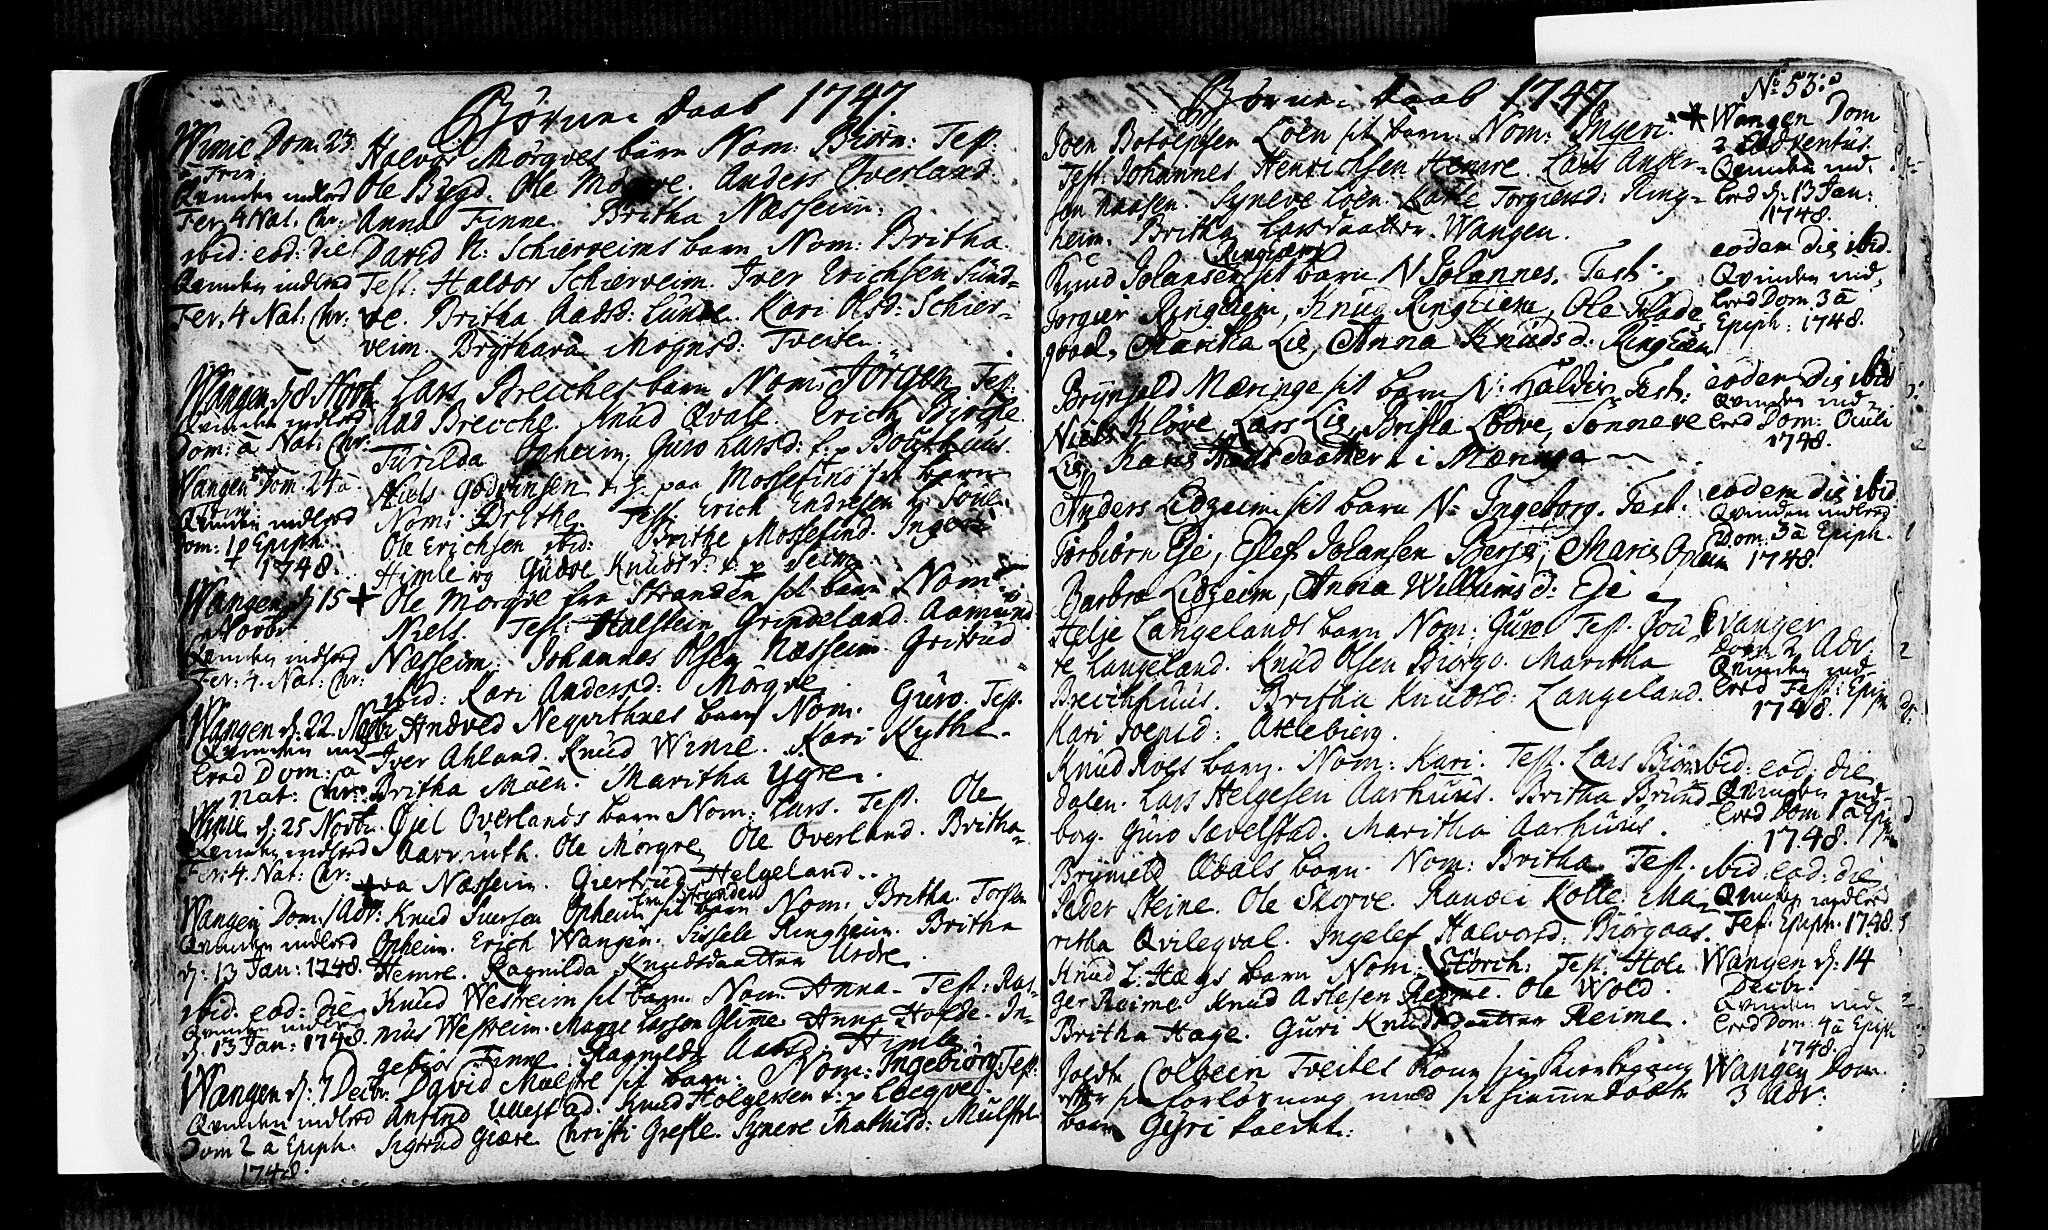 Börne Daab 1747
Winie Dom. 23
à Trin.
Qvinden indlred
Fer. 4 Nat. Chr:
Halvor Mörgves barn Nom: Biörn: Test:
Ole Bygd. Ole Mörgve. Anders Overland
Anna Finne. Britha Næsseim:
ibid: eod: die
Qvinden indlred
Fer. 4 Nat: Chr:
David N: Schierveims barn Nom: Britha
Test: Haldor Schierveim. Iver Erichsen Lünd-
ve. Britha Aadsd: Lünde. Kari Olsd: Schier-
veim. Brythava Mognsd: Tveite.
Wangen d: 8 Novbr
Qvinden indlred
Dom: à Nat: Chr:
Lars Breiches barn Nom: Jörgen Test:
Aad Breiche. Knud Qvale. Erich Birche
Türilda Opheim. Guro Larsd: t: p Bolthuus.
Wangen Dom 24 à
Trin:
Qvinden indlred
Dom: 1 p Epiph.
1748.
Niels Godvinsen t. j. paa Mossefins sit barn
Nom: Brithe. Test. Erich Endresen
Ole Erichsen ibid: Brithe Mossefind. Inger
Himle og Gudve Knudsd: t. p Seim
Wangen d: 15
Novbr
Qvinden indlred
Fer: 4. Nat: Chr:
+ Ole Mörgve fra Stranden sit barn Nom:
Niels. Test: Halstein Grindeland. Aamund
Næsseim: Johannes Olsen Næsseim. Gritrud
ibid: Kari Andersd: Mörgve
Wangen d: 22 Novbr
Qvinden ind
lred Dom: à
Nat: Chr:
Andved Neqvithnes barn Nom. Guro. Test.
Iver Ahland. Knud Winie. Kari Kythe.
Britha Moen. Maritha Ygre.
Winie d: 25 Novbr
Qvinden indlred
Fer: 4. Nat: Chr:
Öjel Overlands barn Nom: Lars. Test. Ole
Aarmuth. Ole Mörgve Ole Overland. Britha
+va Næsseim. Giertrud Helgeland..
Wangen Dom 1 Adv:
Qvinden indlred
d: 13 Jan: 1748.
Knud Iversen Opheim fra Stranden sit barn Nom: Britha. Torsten
Opheim. Erich Wangen. Sissele Ringheim. Britha
Hemre. Ragnilda Knudsdaatter Urdre.
ibid. eod: die
Qvinden indlred
d. 13 Jan: 1748.
Knud Westreim sit barn Nom Anna- Test: Ras-
mus Westreim. Magge Larsson Glime. Anna Holde. In-
gebiör Finne Ragnilda Aadsd Himle
Wangen d: 7 Decbr.
Qvinden indlred
Dom 2 à Epiph.
1748.
David Mölstre sit barn: Nom: Ingebiörg: Test:
Ansfind Ullestad: Knud Holgersen t: p Löeqve.
Sigtrud Giære Christi Grefle. Synere Mathisd: Mulster
Börne Daab 1747
No: 53:
Joen Botolphsen Löen sit barn: Nom: Ingeri. +
Test. Johannes Henrichsen Hemre. Lars Ander-
son Haasen. Syneve Löen. Kahle Torgiersd: Ring-
heim. Britha Larsdaatter Wangen.
Wangen Dom
2 Adventus.
Qvinden ind-
lred d: 13 Jan:
1748.
Knud Johansen Ringheim sit barn N Johannes. Test:
Torgier Ringheim, Knud Ringheim, Ole Flade
goael, Maritha Lie, Anna Knudsd: Ringheim
eodem die ibid.
Qvinden ind-
lred Dom. 3 à
Epiph: 1748.
Brynjeld Mæringe sit barn N: Haldis. Test:
Niels Klöve, Lars Lie, Britha Lödve, Sönneve
Lie, Karis daatter i Mæringe
eodem die ibid
Qvinden ind-
lred Dom: Oculi
1748.
Anders Lidzeim sit barn N: Ingeborg. Test:
Torbiörn Eje, Elef Johansen Berge, Maris Opheim
Barbro Lidzeim, Anna Willumsd: Eje
eodem die ibid
Qvinden indlred
Dom. 3 à Epiph.
1748.
Helje Langelands barn Nom: Guro Test. Joü
re Langeland. Knud Olsen Biörgo. Maritha
Breichhuus. Britha Knudsd: Langeland.
Kari Joensd: Attlebierg.
Evanger
Dom 2 Adv.
Qvinden ind-
lred Fest: Epiph
1748.
Knud Roes barn. Nom: Kari: Test. Lars Biör
dalen. Lars Helgesen Aarhuus. Britha Brund
borg. Guro Sævelstad. Maritha Aarhuus.
ibid: eod: die
Qvinden ind
lred Dom 1 à Epiph
1748.
Brynield Ædals barn. Nom: Britha. Test.
Peder Steine. Ole Skorve. Randei Kolle. Ma-
ritha Qvileqval. Ingelef Halvorsd: Biörgaas.
ibid: eod: die
Qvinden indlred
Fest. Epiph. 1748.
Knud L: Hægs barn Nom: Störch: Test. Hol-
ger Reime Knud Aslesen Reime. Ole Wold.
Britha Hage. Guri Knudsdaatter Reime.
Wangen d: 14
Decbr.
Qvinden ind-
lred Dom: 4 à Epiph
1748.
Joedte Colbein Tveites Kone sin Kirckegang
efter sin forlösning med sit hiemmedöbte
barn Gyri kaldet:
Wangen Dom.
3 Adv: